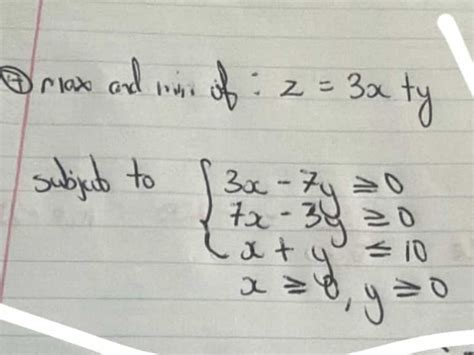 ⑰ max and min of : z = 3x + y
subjub to { 3x - 7y ≥ 0
7x - 3y ≥ 0
x + y ≤ 10
x ≥ 0, y ≥ 0